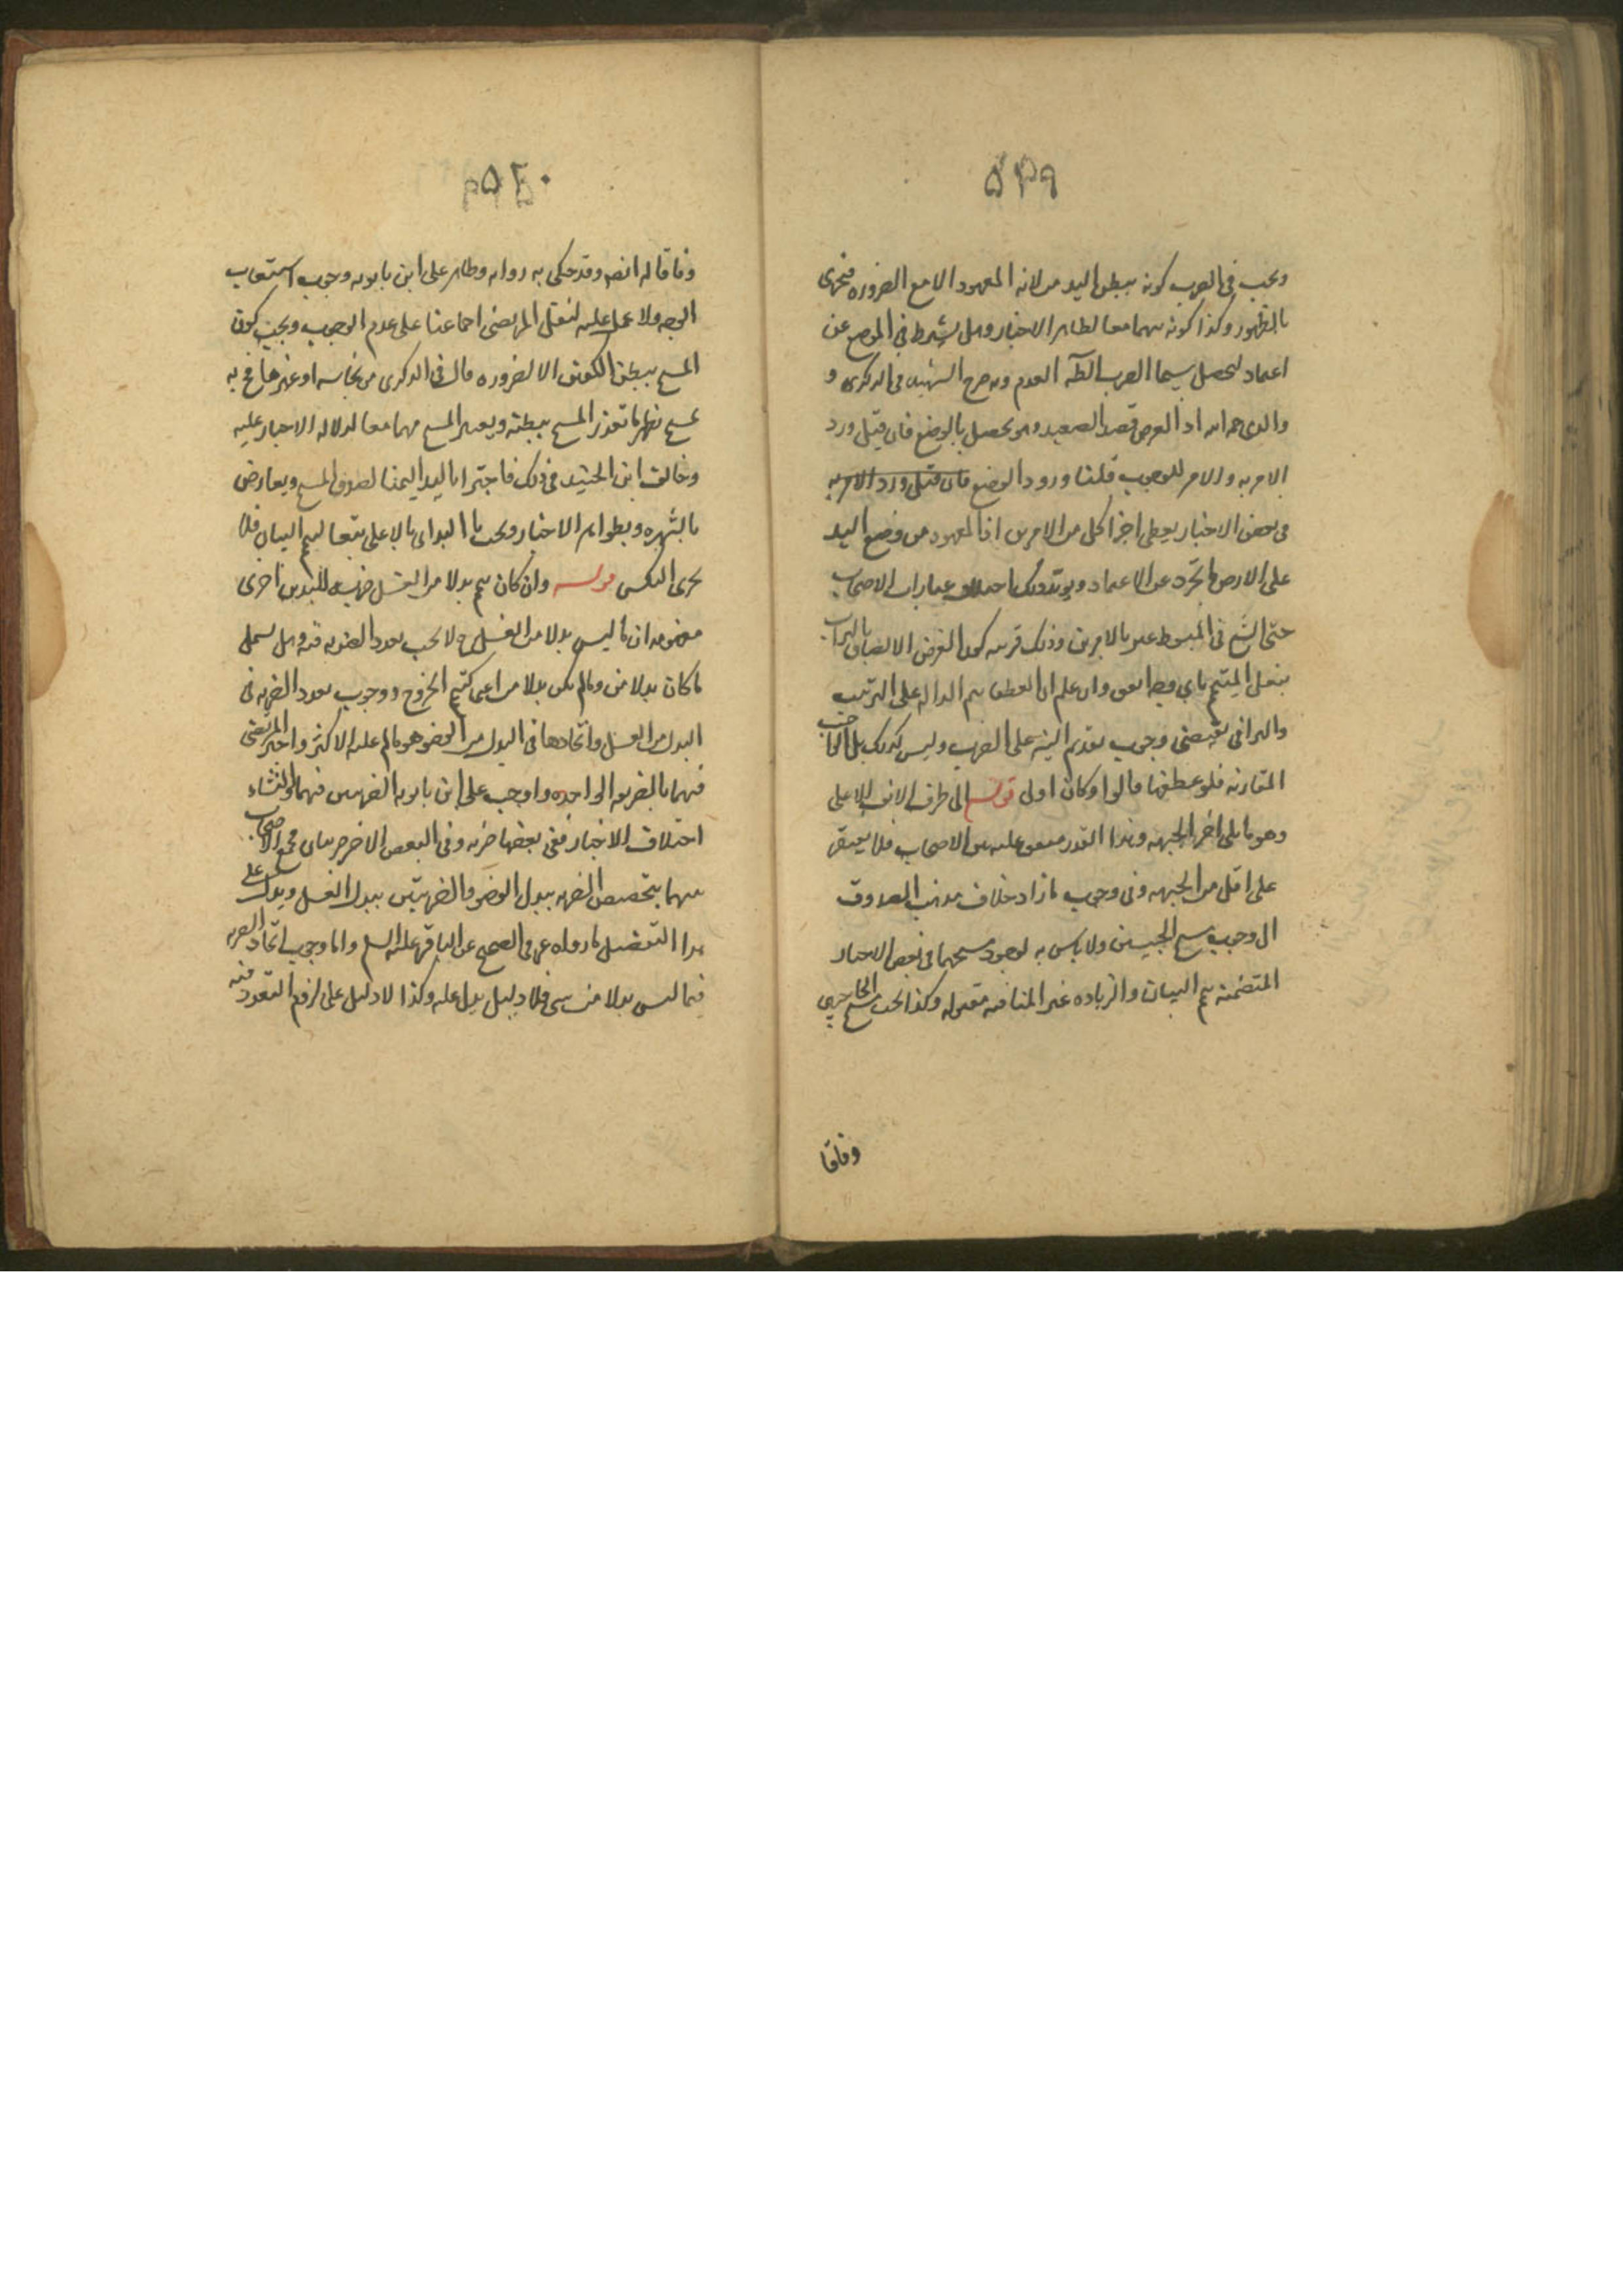 ۵۳۹
ويجب في الضرب كونه ببطن اليدين لانه المعهود الا مع الضرورة فيجزى
بالظهور وكذا كونه بهما معا لظاهر الاخبار وهل يشترط في الوضع عن
اعتماد لتحصل سيما الضرب الظ العدم وبه صرح الشهيد في الذكرى و
والدى رحمه الله اذ الغرض قصد الصعيد وهو يحصل بالوضع فان قيل ورد
الامر به والامر للوجوب قلنا ورود الوضع فان قيل ورد الامر به
في بعض الاخبار يعطى اجزا كل من الامرين اذ المعهود من وضع اليد
على الارض المجرد عن الاعتماد ويويد ذلك اختلاف عبارات الاصحاب
حتى الشيخ في المبسوط عبر بالامرين وذلك قرينه كون الغرض الالصاق بالتراب
بفعل المتيمم باي وجه اتفق وان علم ان العطف بثم الدالة على الترتيب
والتراخي يقتضى وجوب تقديم النية على الضرب وليس كذلك بل الواجب
المقارنه فلو عطفها بالواو كان اولى قوله الى طرف الانف الاعلى
وهو ما يلى اخر الجبهه وهذا القدر متفق عليه بين الاصحاب فلا يقتصر
على اقل من الجبهه وفي وجوب ما زاد خلاف مذهب الصدوق
الى وجوب مسح الجبينين ولا باس به لوجود مسحهما في بعض الاخبار
المتضمنه ثم البيان والزيادة غير المنافيه مقبوله وكذا يجب مسح الحاجبين
وفاقا
۵۴۰
وفاقا له ايضه وقد حكى به رواية وظاهر على ابن بابويه وجوب استيعاب
الوجه ولا عمل عليه لنقل المرتضى اجماعنا على عدم الوجوب ويجب كون
المسح ببطن الكفين الا لضروره قال في الذكرى من نجاسه او غيرها فح به
يمسح بظهر ما تعذر المسح ببطنه ويعتبر المسح بهما معا لدلاله الاخبار عليه
وخالف ابن الجنيد في ذلك فاجتزا باليد اليمنا لصدق المسح ويعارض
بالشهره وبظواهر الاخبار ويجب البداة بالاعلى تبعا ليتم البيان فلا
يجزى العكس قوله وان كان تيمم بدلا من الغسل ضرب لليدين اخرى
مفهومه ان ما ليس بدلا من الغسل لا يجب تعدد الضربه فيه وهل يشمل
ما كان بدلا من وما لم يكن بدلا من اعنى كتيمم الخروج ووجوب تعدد الضربه في
البدل من الغسل واتحادها في البدل من الوضوء هو ما عليه الاكثر واجتزا المرتضى
فيهما بالضربه الواحده واوجب على ابن بابويه الضربتين فيهما والمنشاء
اختلاف الاخبار ففي بعضها ضربه وفي البعض الاخر ضربتان فجمع الاصحاب
بينهما بتخصيص الضربه ببدل الوضو والضربتين ببدل الغسل ويدل على
هذا التفصيل ما رواه في الصحيح عن الباقر عليه السلم واما وجوب اتحاد الضربه
فيما ليس بدلا من شى فلا دليل يدل عليه وكذا لا دليل على لزوم التعدد فيه